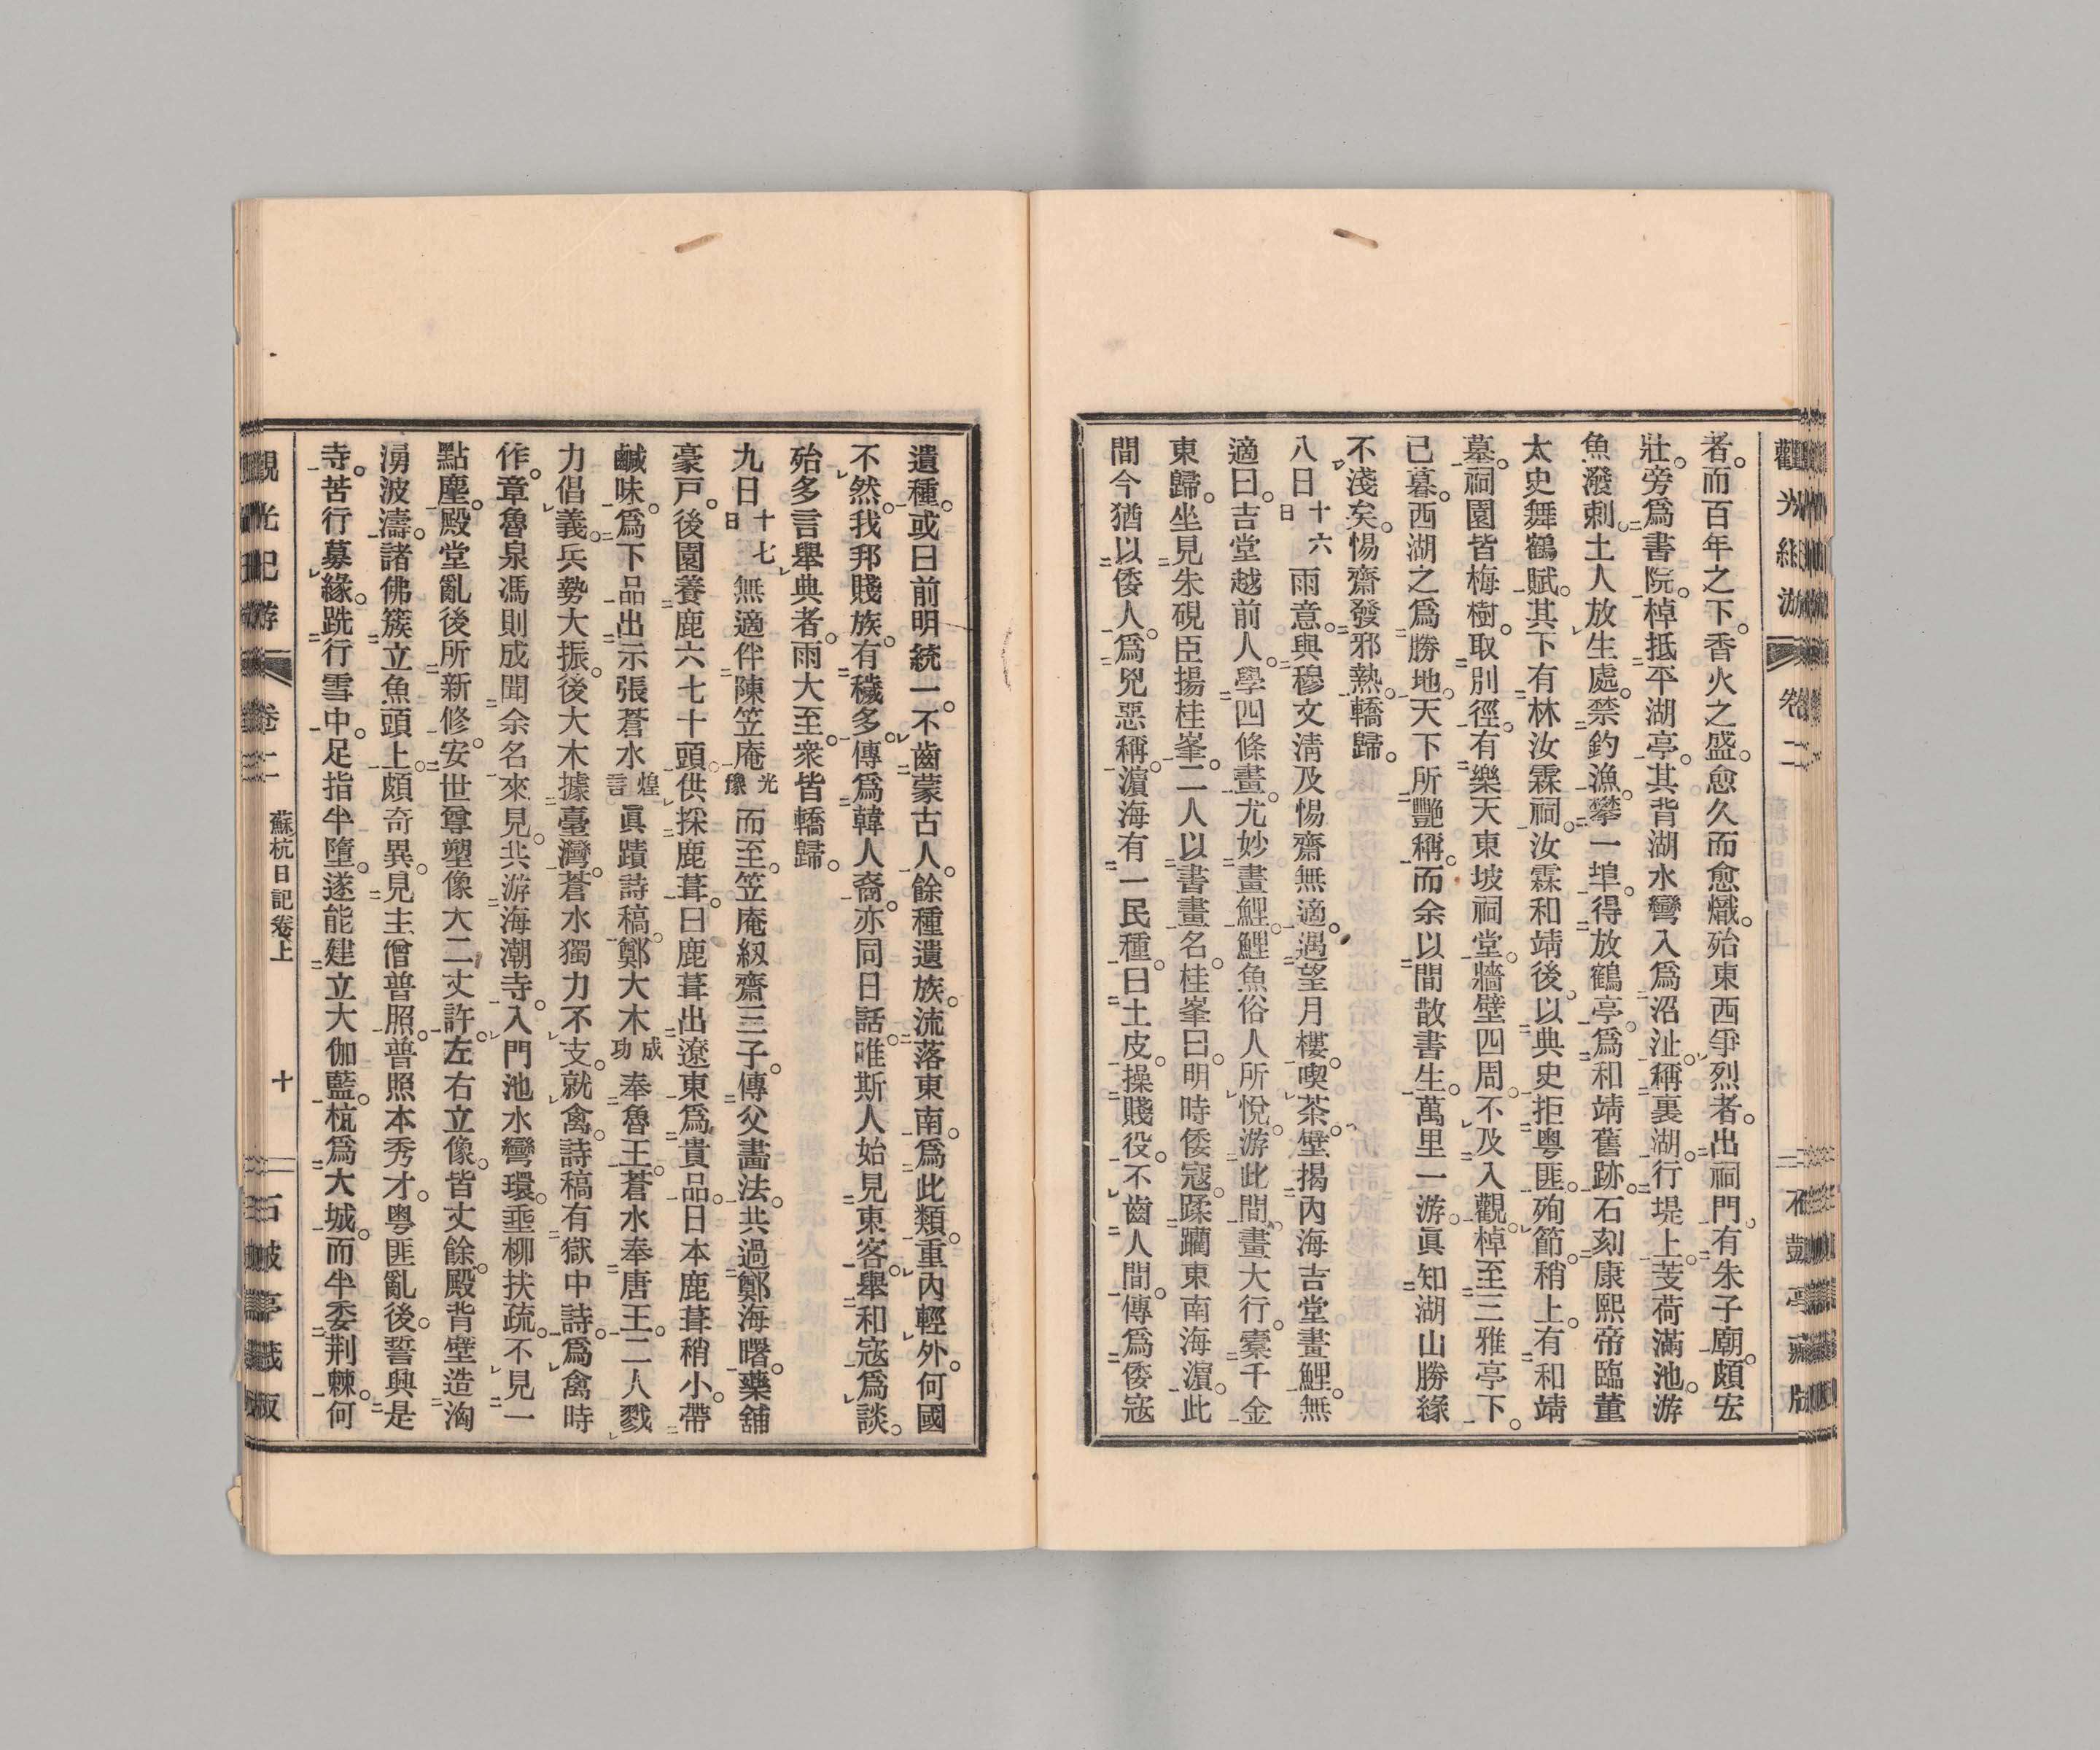 觀光紀游 卷二 不 亭藏版
者。而百年之下。香火之盛。愈久而愈熾。殆東西爭烈者。出祠門。有朱子廟。頗宏
壯。旁爲書院。棹抵平湖亭。其背湖水彎入爲沼沚。稱裏湖。行堤上。芰荷滿池。游
魚潑剌。土人放生處。禁釣漁。攀一埠。得放鶴亭。爲和靖舊跡。石刻康熙帝臨董
太史舞鶴賦。其下有林汝霖祠。汝霖和靖後。以典史拒粵匪。殉節。稍上。有和靖
墓。祠園皆梅樹。取別徑。有樂天東坡祠堂。牆壁四周。不及入觀。棹至三雅亭下。
已暮。西湖之爲勝地。天下所艷稱。而余以間散書生。萬里一游。眞知湖山勝緣
不淺矣。惕齋發邪熱。轎歸。
八日十六日雨意。與穆文淸及惕齋無適。遇望月樓。喫茶。壁揭內海吉堂畫鯉。無
適曰。吉堂越前人。學四條畫。尤妙畫鯉。鯉魚俗人所悅。游此間。畫大行。橐千金
東歸。坐見朱硯臣揚桂峯。二人以書畫名。桂峯曰。明時倭寇。蹂躪東南海濵。此
間今猶以倭人。爲兇惡稱。濵海有一民種。曰土皮。操賤役。不齒人間。傳爲倭寇
遺種。或曰前明統一。不齒蒙古人。餘種遺族。流落東南。爲此類。重內輕外。何國
不然。我邦賤族。有穢多。傳爲韓人裔。亦同日話。唯斯人始見東客。擧和寇爲談。
殆多言擧典者。雨大至。衆皆轎歸。
九日十七日無適伴陳笠庵光豫而至。笠庵紉齋三子。傳父畵法。共過鄭海曙。藥舖
豪戶。後園養鹿六七十頭。供採鹿茸。曰鹿茸出遼東爲貴品。日本鹿茸稍小。帶
鹹味。爲下品。出示張蒼水煌言眞蹟詩稿。鄭大木成功奉魯王。蒼水奉唐王。二人戮
力倡義。兵勢大振。後大木據臺灣。蒼水獨力不支。就禽。詩稿有獄中詩。爲禽時
作。章魯泉馮則成聞余名來見。共游海潮寺。入門池水彎環。垂柳扶疏。不見一
點塵。殿堂亂後所新修。安世尊塑像。大二丈許。左右立像。皆丈餘。殿背壁造洶
湧波濤。諸佛簇立魚頭上。頗奇異。見主僧普照。普照本秀才。粵匪亂後。誓興是
寺。苦行募緣。跣行雪中。足指半墮。遂能建立大伽藍。杭爲大城。而半委荆棘。何
觀光紀游 卷二 蘇杭日記卷上 十 亭藏版